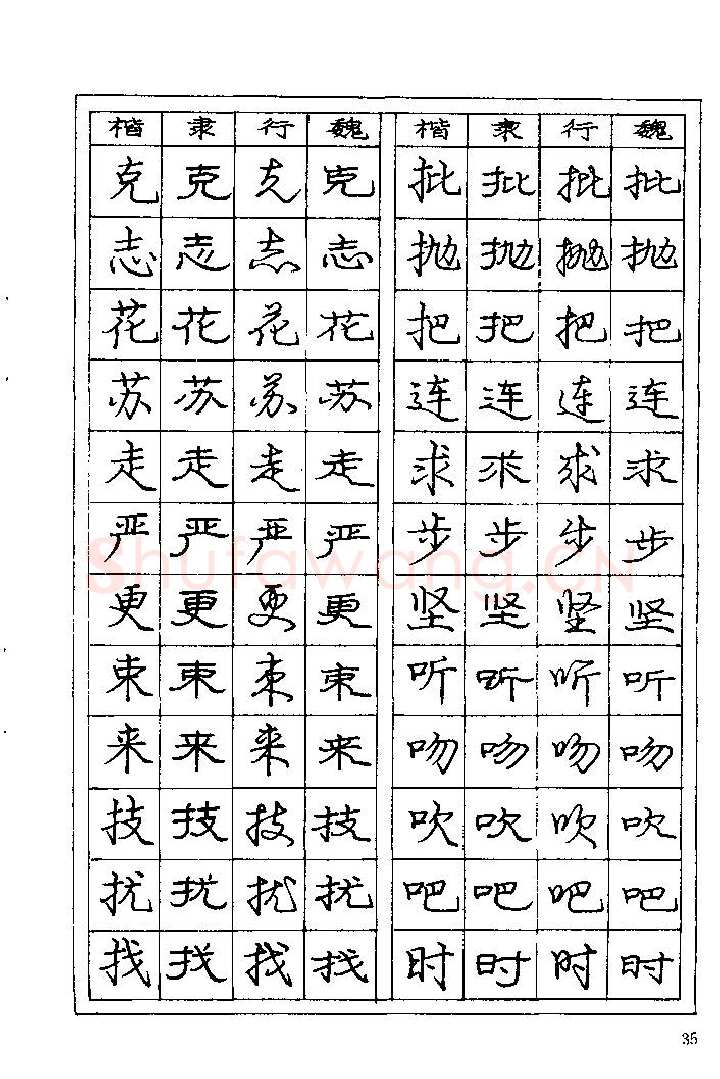 楷 隶 行 魏 楷 隶 行 魏
克 克 克 克 批 批 批 批
志 志 志 志 抛 抛 抛 抛
花 花 花 花 把 把 把 把
苏 苏 苏 苏 连 连 连 连
走 走 走 走 求 求 求 求
严 严 严 严 步 步 步 步
更 更 更 更 坚 坚 坚 坚
束 束 束 束 听 听 听 听
来 来 来 来 吻 吻 吻 吻
技 技 技 技 吹 吹 吹 吹
扰 扰 扰 扰 吧 吧 吧 吧
找 找 找 找 时 时 时 时
Shufawang.CN
35